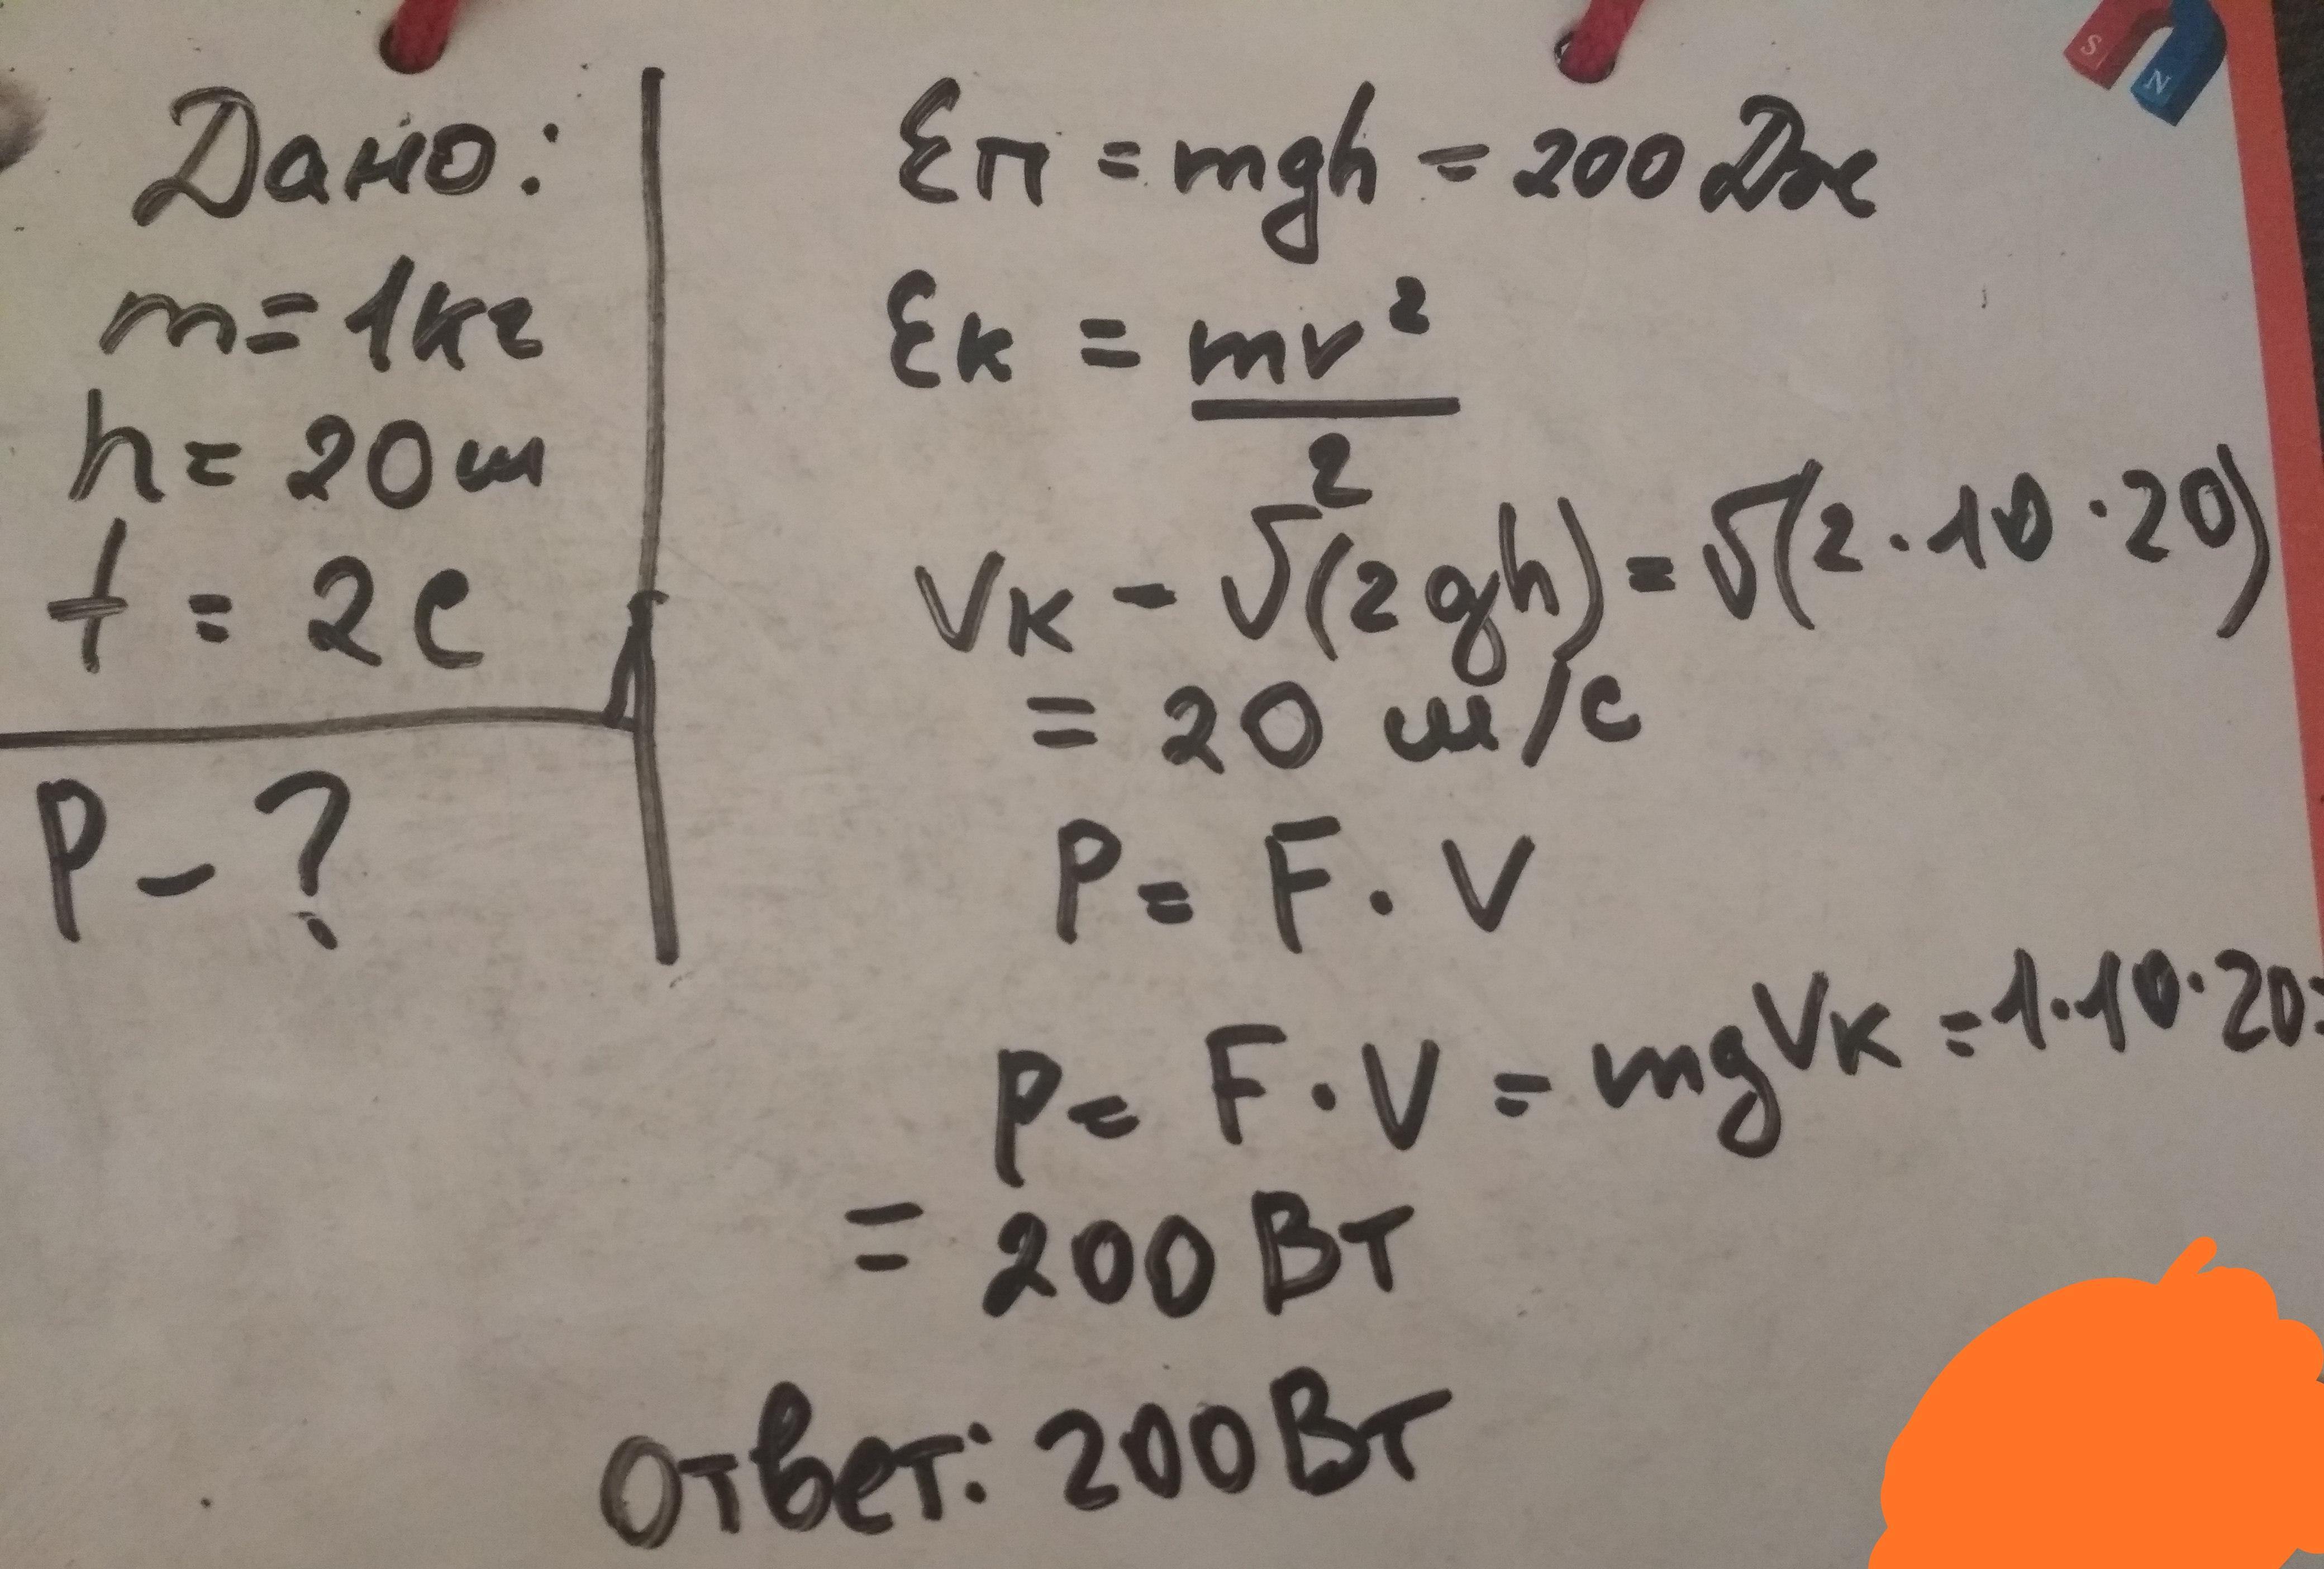 Дано:
m = 1кг
h = 20м
t = 2с
P - ?
Eп = mgh = 200 Дж
Eк = mv²
2
Vк - √(2gh) = √(2·10·20)
= 20 м/с
P = F · V
P = F · V = mgVк = 1·10·20=
= 200 Вт
Ответ: 200 Вт
S
N